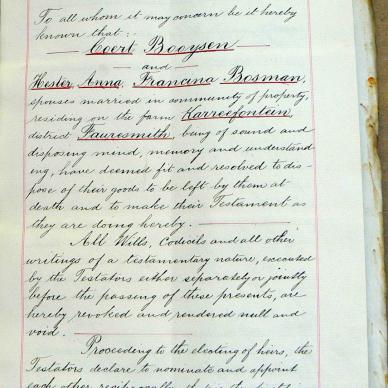 To all whom it may concern be it hereby
known that:
Coert Booysen
and
Hester Anna Francina Bosman,
spouses married in community of property,
residing on the farm Karreefontein,
district Fauresmith, being of sound and
disposing mind, memory and understand
ing, have deemed fit and resolved to dis-
pose of their goods to be left by them at
death and to make their Testament as
they are doing hereby.—
All Wills, Codicils and all other
writings of a testamentary nature, executed
by the Testators either separately or jointly
before the passing of these presents, are
hereby revoked and rendered null and
void.
Proceeding to the electing of heirs, the
Testators declare to nominate and appoint
each other reciprocally